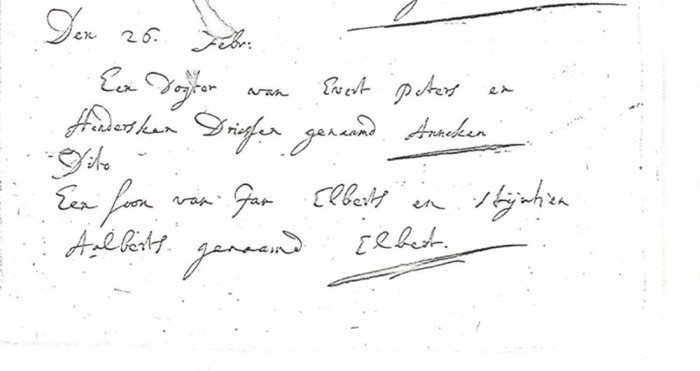 Den 26. Febr:
Een Dogter van Evert Peters en
Hendersken Driessen genaamd Anneken
Dito
Een soon van Jan Elberts en Stijntien
Aalberts genaamd Elbert.